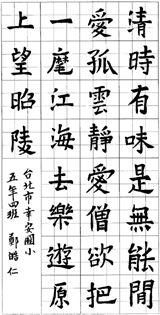 清時有味是無能閒
愛孤雲靜愛僧欲把
一麾江海去樂遊原
上望昭陵
台北市幸安國小
五年四班 鄭 仁